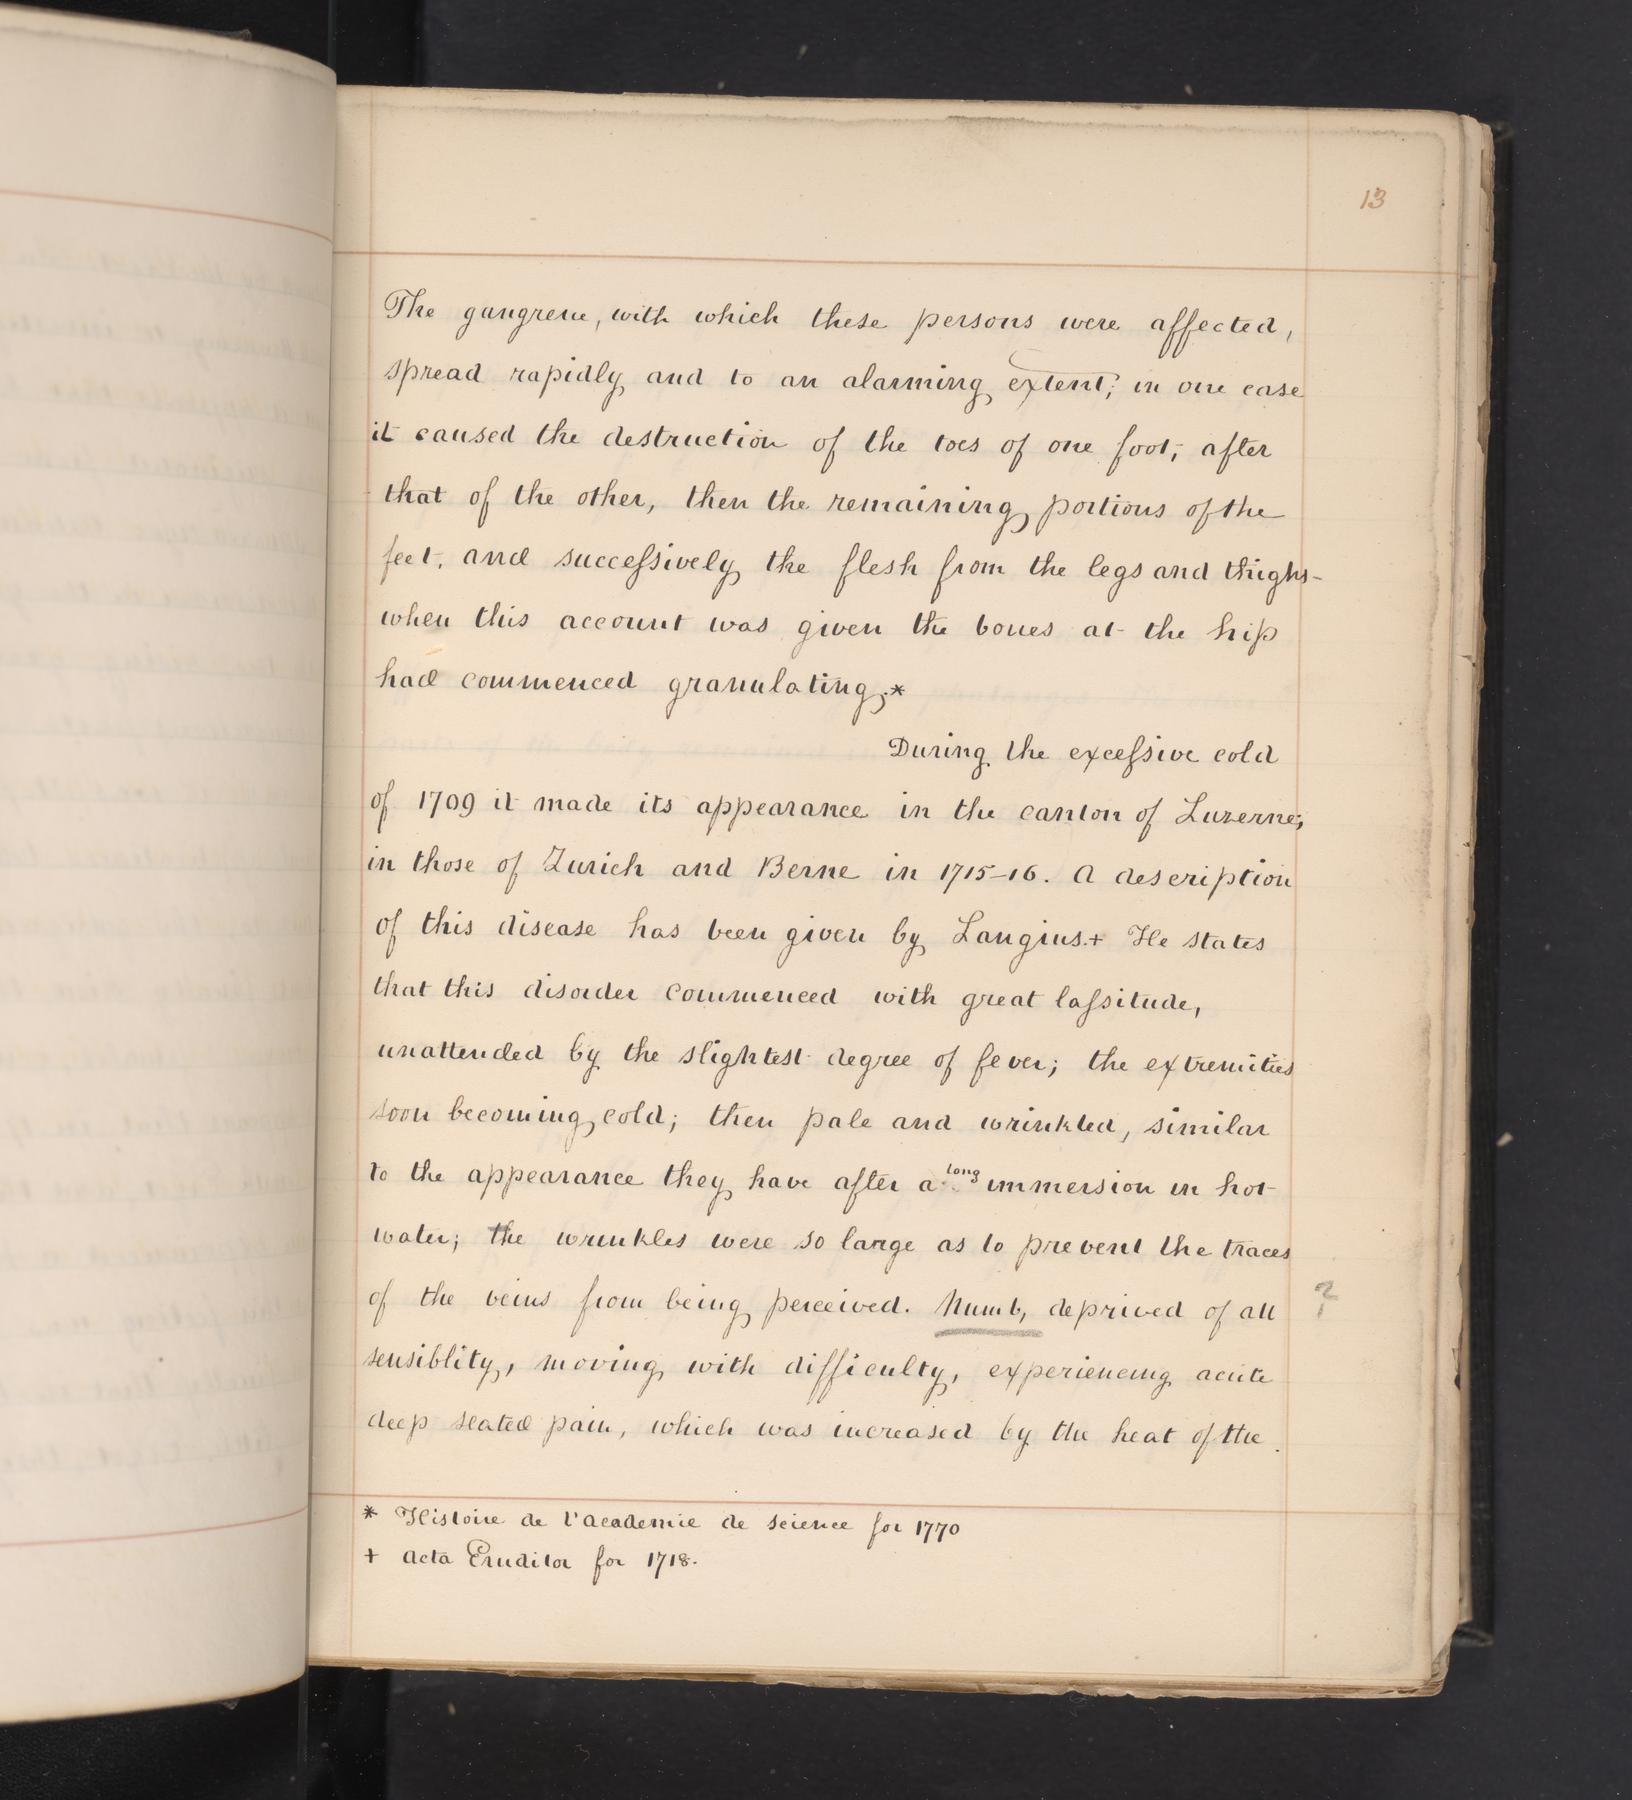 13
The gangrene, with which these persons were affected,
spread rapidly and to an alarming extent; in one case
it caused the destruction of the toes of one foot, after
that of the other, then the remaining portions of the
feet, and succeſsively the flesh from the legs and thighs-
when this account was given the bones at the hip
had commenced granulating.*
During the exceſsive cold
of 1709 it made its appearance in the canton of Luzerne;
in those of Zurich and Berne in 1715-16. A description
of this disease has been given by Langius.+ He states
that this disorder commenced with great laſsitude,
unattended by the slightest degree of fever; the extremities
soon becoming cold; then pale and wrinkled, similar
to the appearance they have after a long immersion in hot
water; the wrinkles were so large as to prevent the traces
of the veins from being perceived. Numb, deprived of all ?
sensiblity, moving with difficulty, experiencing acute
deep seated pain, which was increased by the heat of the
* Histoire de l'academie de science for 1770
+ Acta Eruditor for 1718.